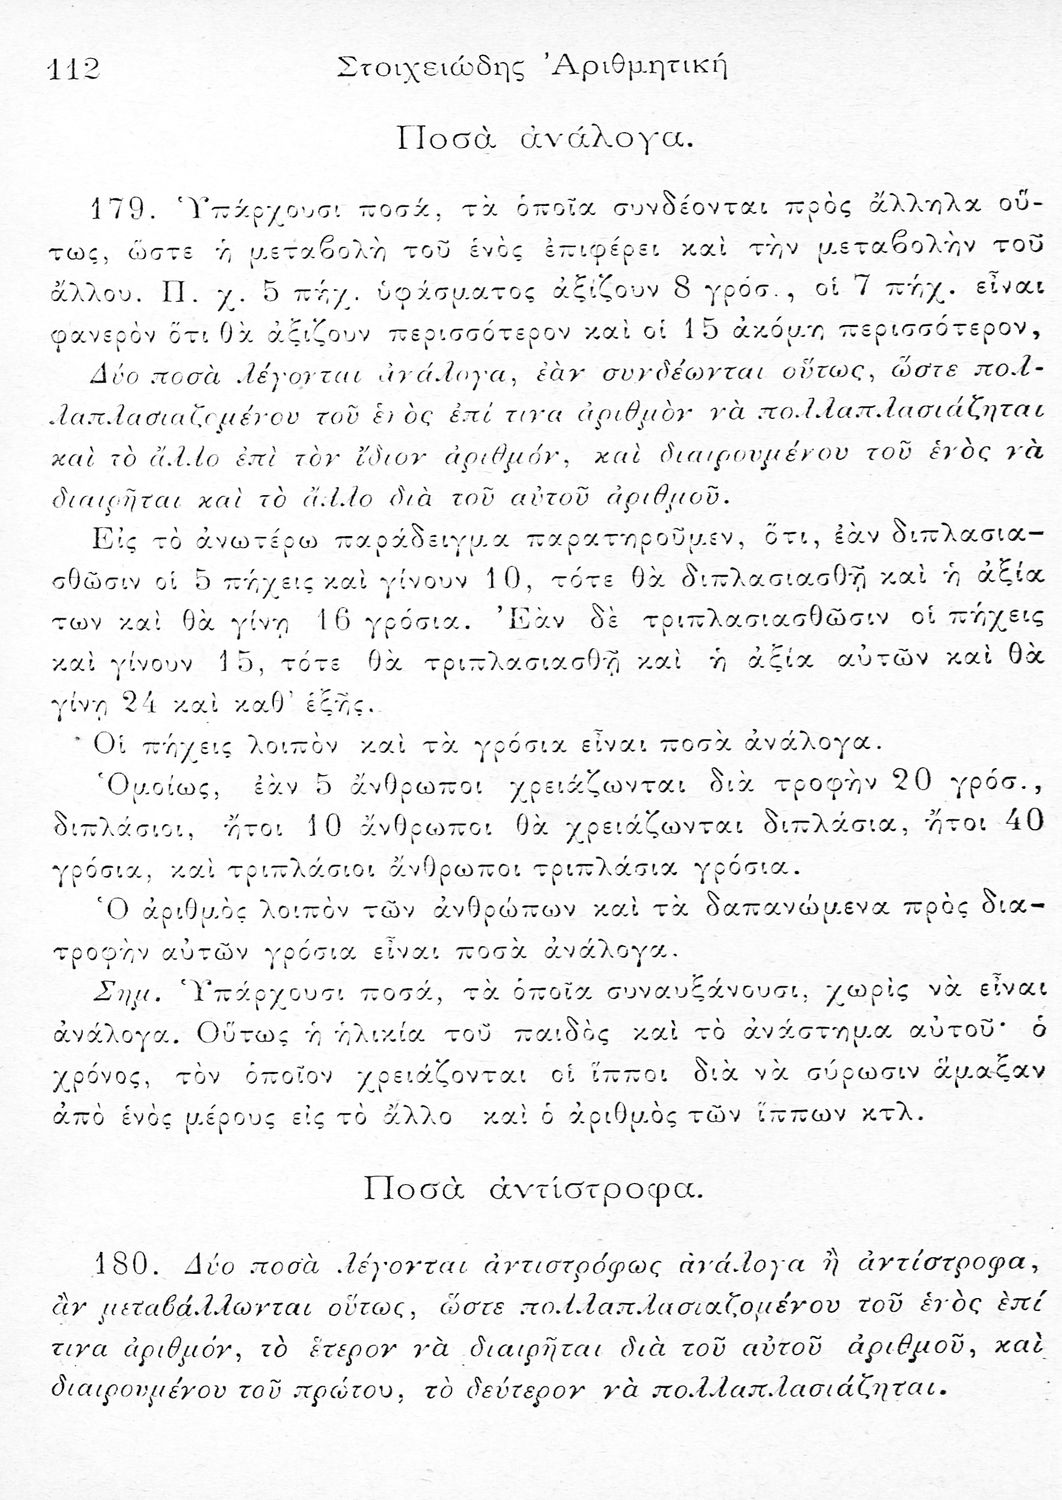 112 Στοιχειώδης Ἀριθμητική
Ποσὰ ἀνάλογα.
179. Ὑπάρχουσι ποσά, τὰ ὁποῖα συνδέονται πρὸς ἄλληλα οὕ-
τως, ὥστε ἡ μεταβολὴ τοῦ ἑνὸς ἐπιφέρει καὶ τὴν μεταβολὴν τοῦ
ἄλλου. Π. χ. 5 πήχ. ὑφάσματος ἀξίζουν 8 γρόσ., οἱ 7 πήχ. εἶναι
φανερὸν ὅτι θὰ ἀξίζουν περισσότερον καὶ οἱ 15 ἀκόμη περισσότερον,
Δύο ποσὰ λέγονται ἀνάλογα, ἐὰν συνδέωνται οὕτως, ὥστε πολ-
λαπλασιαζομένου τοῦ ἑνὸς ἐπί τινα ἀριθμὸν νὰ πολλαπλασιάζηται
καὶ τὸ ἄλλο ἐπὶ τὸν ἴδιον ἀριθμόν, καὶ διαιρουμένου τοῦ ἑνὸς νὰ
διαιρῆται καὶ τὸ ἄλλο διὰ τοῦ αὐτοῦ ἀριθμοῦ.
Εἰς τὸ ἀνωτέρω παράδειγμα παρατηροῦμεν, ὅτι, ἐὰν διπλασια-
σθῶσιν οἱ 5 πήχεις καὶ γίνουν 10, τότε θὰ διπλασιασθῇ καὶ ἡ ἀξία
των καὶ θὰ γίνῃ 16 γρόσια. Ἐὰν δὲ τριπλασιασθῶσιν οἱ πήχεις
καὶ γίνουν 15, τότε θὰ τριπλασιασθῇ καὶ ἡ ἀξία αὐτῶν καὶ θὰ
γίνῃ 24 καὶ καθ’ ἑξῆς.
Οἱ πήχεις λοιπὸν καὶ τὰ γρόσια εἶναι ποσὰ ἀνάλογα.
Ὁμοίως, ἐὰν 5 ἄνθρωποι χρειάζωνται διὰ τροφὴν 20 γρόσ.,
διπλάσιοι, ἤτοι 10 ἄνθρωποι θὰ χρειάζωνται διπλάσια, ἤτοι 40
γρόσια, καὶ τριπλάσιοι ἄνθρωποι τριπλάσια γρόσια.
Ὁ ἀριθμὸς λοιπὸν τῶν ἀνθρώπων καὶ τὰ δαπανώμενα πρὸς δια-
τροφὴν αὐτῶν γρόσια εἶναι ποσὰ ἀνάλογα.
Σημ. Ὑπάρχουσι ποσά, τὰ ὁποῖα συναυξάνουσι, χωρὶς νὰ εἶναι
ἀνάλογα. Οὕτως ἡ ἡλικία τοῦ παιδὸς καὶ τὸ ἀνάστημα αὐτοῦ· ὁ
χρόνος, τὸν ὁποῖον χρειάζονται οἱ ἵπποι διὰ νὰ σύρωσιν ἅμαξαν
ἀπὸ ἑνὸς μέρους εἰς τὸ ἄλλο καὶ ὁ ἀριθμὸς τῶν ἵππων κτλ.
Ποσὰ ἀντίστροφα.
180. Δύο ποσὰ λέγονται ἀντιστρόφως ἀνάλογα ἢ ἀντίστροφα,
ἂν μεταβάλλωνται οὕτως, ὥστε πολλαπλασιαζομένου τοῦ ἑνὸς ἐπί
τινα ἀριθμόν, τὸ ἕτερον νὰ διαιρῆται διὰ τοῦ αὐτοῦ ἀριθμοῦ, καὶ
διαιρουμένου τοῦ πρώτου, τὸ δεύτερον νὰ πολλαπλασιάζηται.